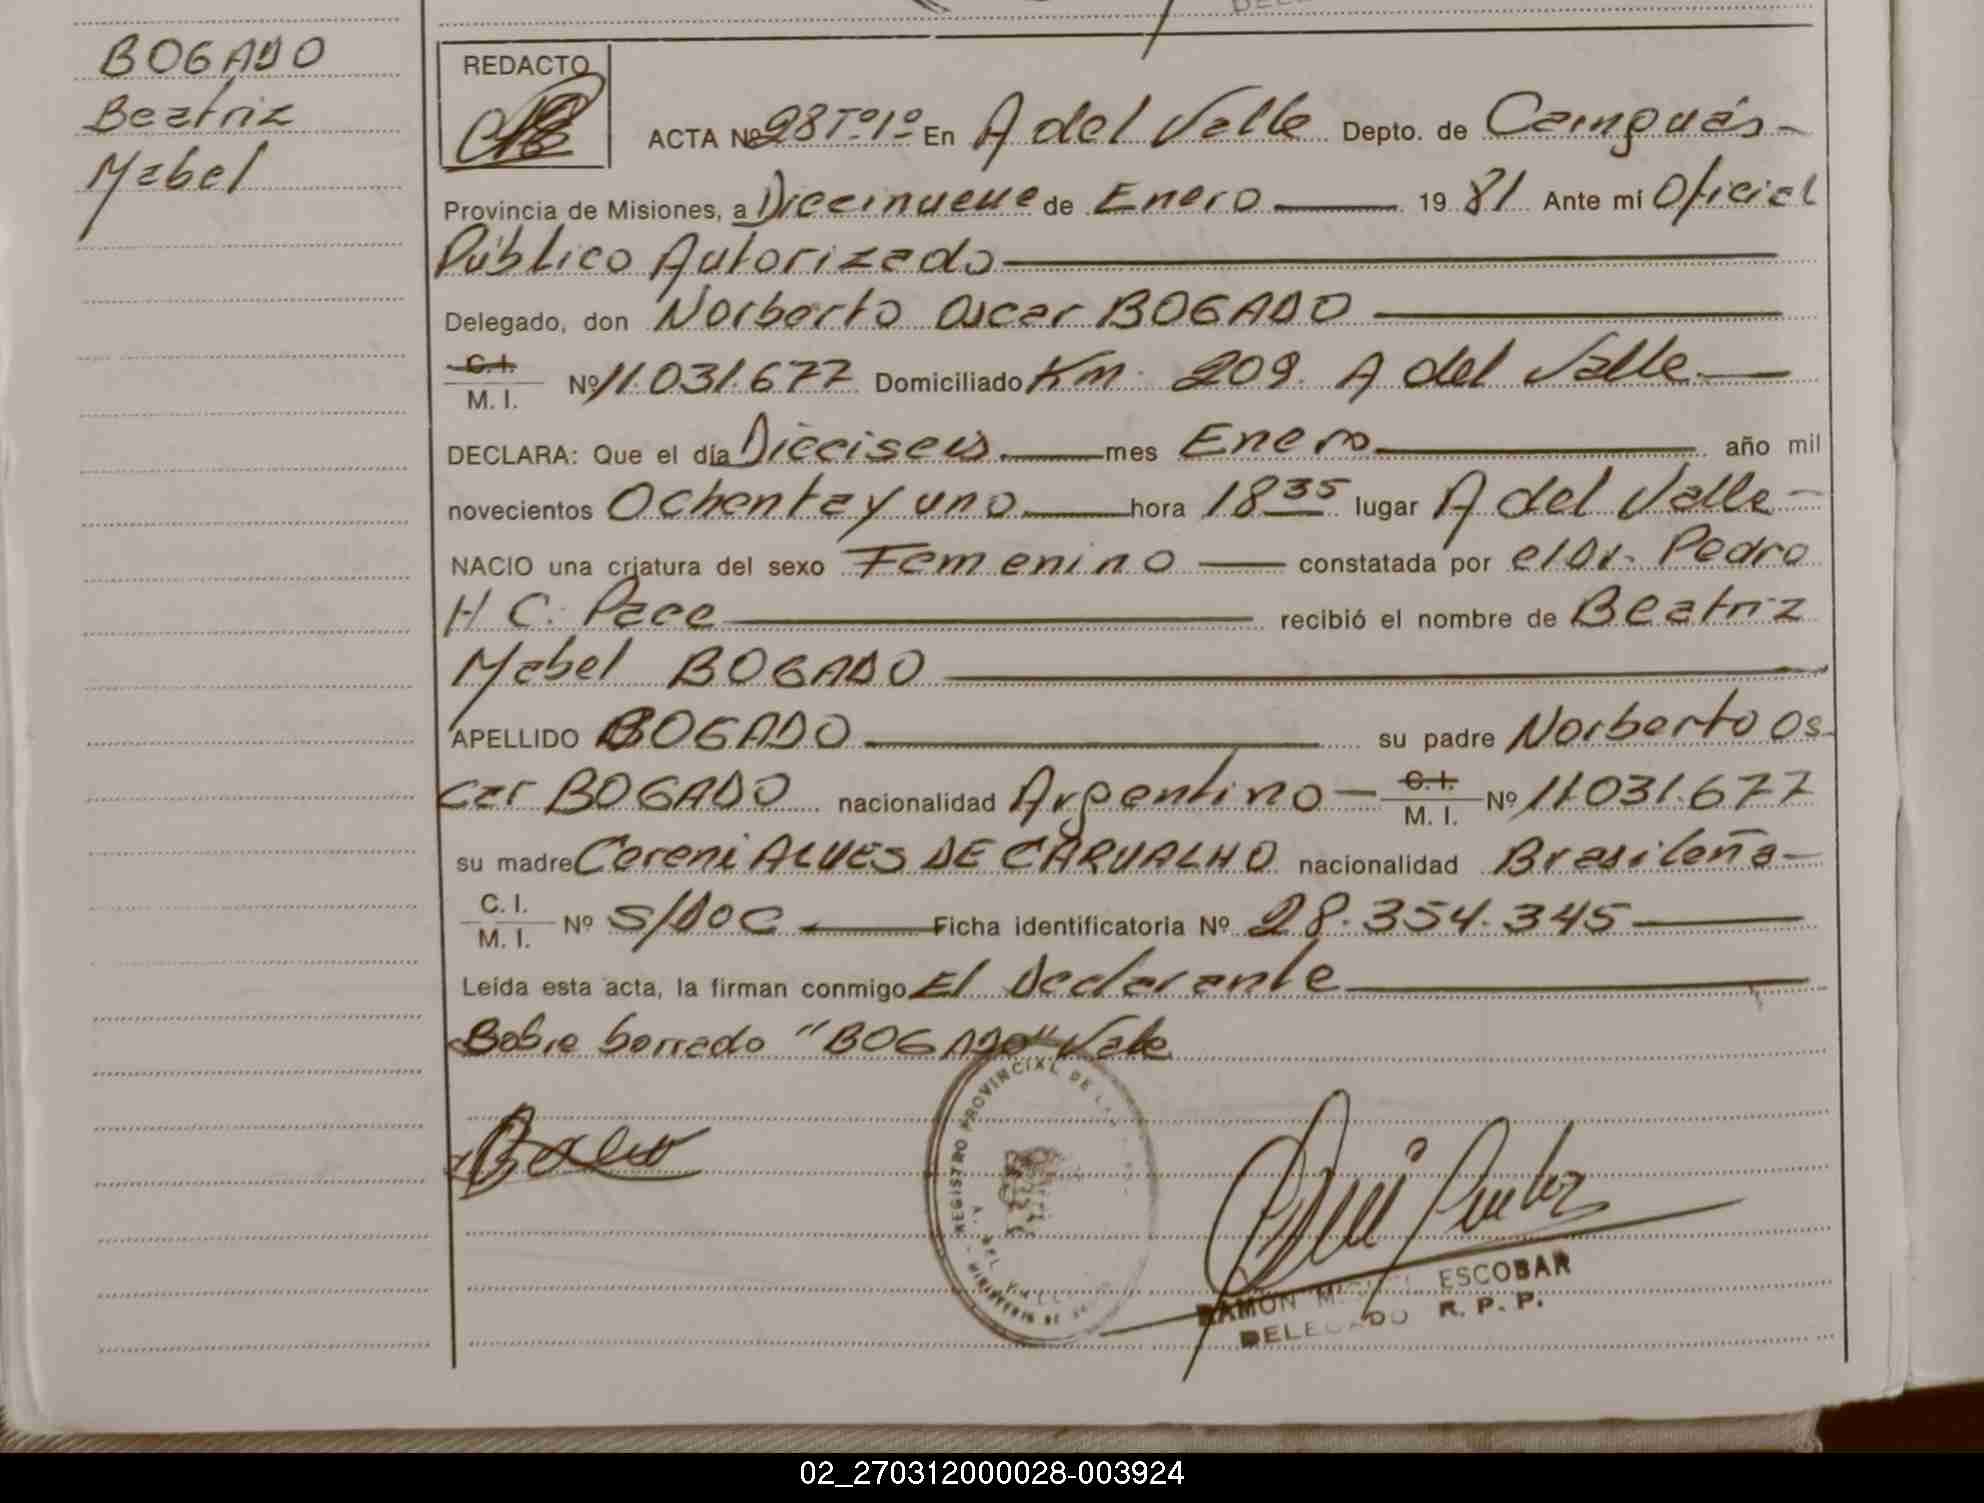 BOGADO
Beatriz
Mabel
REDACTO
ACTA Nº 28 Tº1º En A del Valle Depto. de Cainguás
Provincia de Misiones, a Diecinueve de Enero 1981 Ante mí Oficial
Público Autorizado
Delegado, don Norberto Oscar BOGADO
C.I.
M. I. Nº 11.031.677 Domiciliado Km. 209. A del Valle
DECLARA: Que el día Dieciseis mes Enero año mil
novecientos Ochenta y uno hora 18 35 lugar A del Valle
NACIO una criatura del sexo Femenino constatada por el Dr. Pedro
H C. Pace recibió el nombre de Beatriz
Mabel BOGADO
APELLIDO BOGADO su padre Norberto Os
car BOGADO nacionalidad Argentino C.I.
M. I. Nº 11.031.677
su madre Cereni ALVES DE CARVALHO nacionalidad Brasileña
C. I.
M. I. Nº S/DOC Ficha identificatoria Nº 28.354.345
Leída esta acta, la firman conmigo El Declarante
Sobre borrado "BOGADO" Vale
REGISTRO PROVINCIAL DE LA
A. DEL VALLE
MINISTERIO DE
RAMON MIGUEL ESCOBAR
DELEGADO R. P. P.
02_270312000028-003924